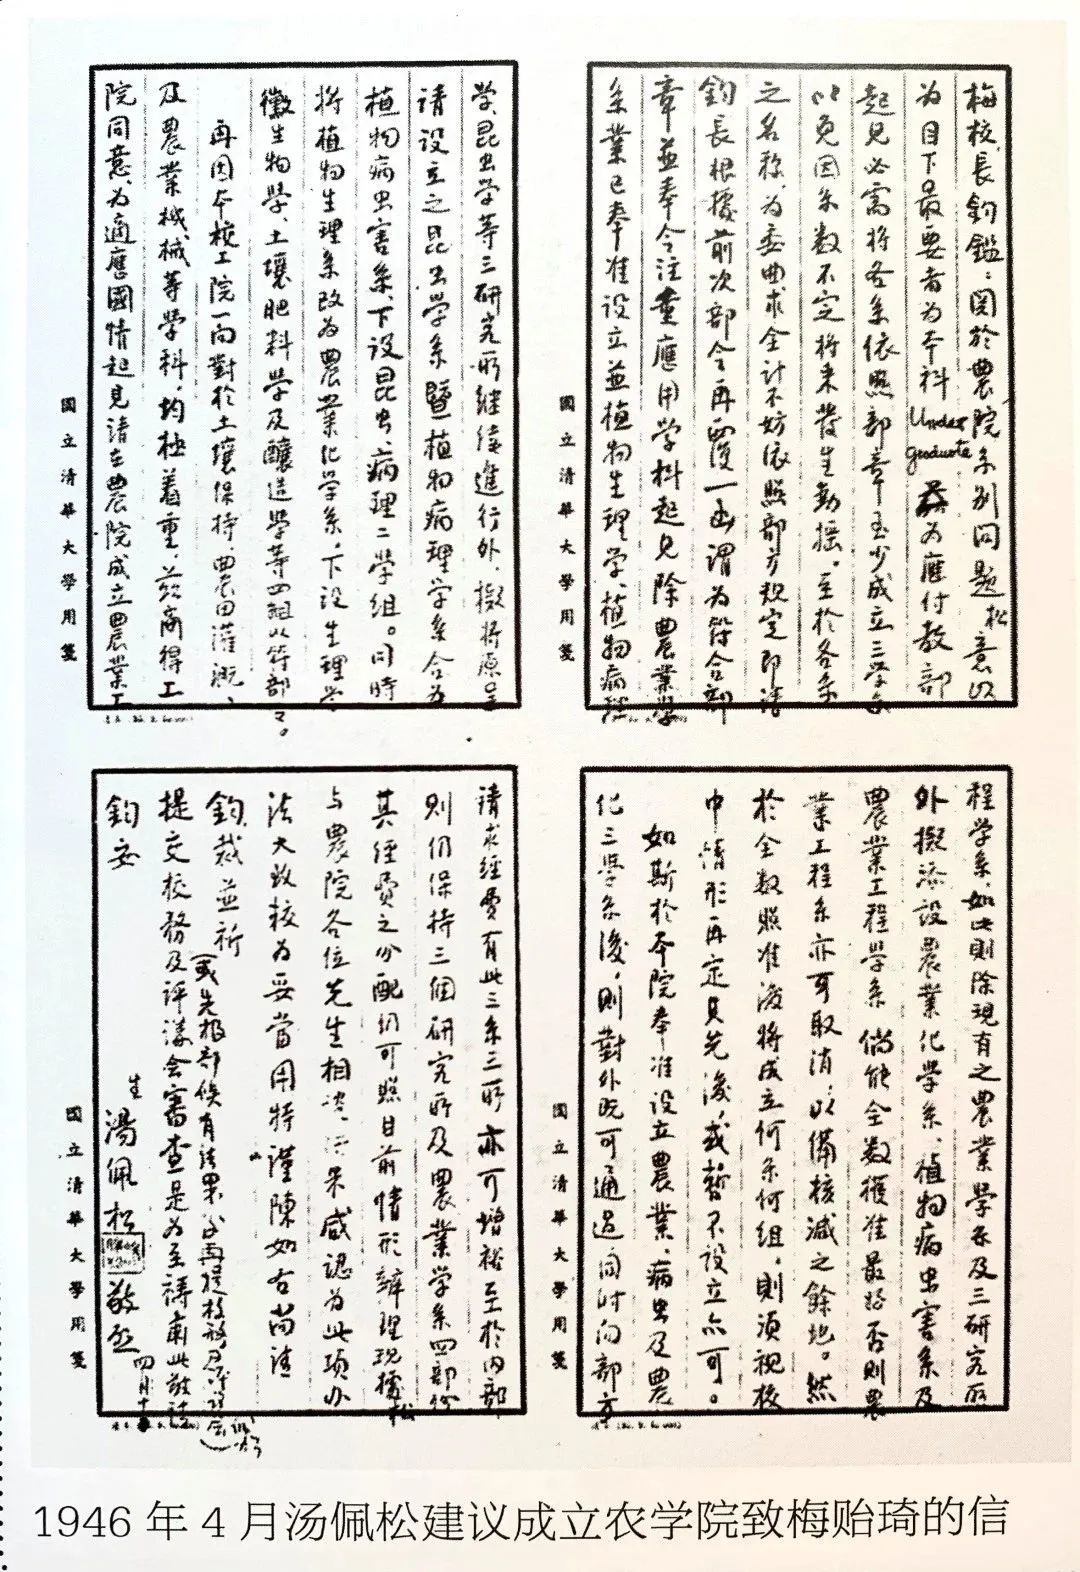 梅校長鈞鑑：関於農院系别问题松意以
为目下最要者为本科Undergraduate为應付教部
起見必需将各系依照部章至少成立三学系
以免因系数不定将来發生動摇。至於各系
之名称，为委曲求全计不妨依照部方規定即請
鈞長根據前次部令再覆一函謂为符合部
章並奉令注重應用学科起見除農業學
系業已奉准设立並植物生理学、植物病理
学、昆虫学等三研究所继续進行外，擬将原呈
请设立之昆虫学系暨植物病理学系合为
植物病虫害系，下设昆虫、病理二学组。同時
将植物生理系改为農業化学系，下设生理学
徽生物學、土壤肥料学及釀造學等四組以符部令。
再因本校工院一向對於土壤保持，農田灌溉、
及農業机械等学科，均極着重，兹商得工
院同意，为適應國情起見请在農院成立農業工
國立清華大學用箋
國立清華大學用箋
程学系，如此則除現有之農業学系及三研究所
外擬添设農業化学系、植物病虫害系及
農業工程学系 倘能全数獲准最好否則農
業工程系亦可取消，以備核減之餘地。然
於全数照准後将成立何系何組，則须視校
中情形再定其先後，或暫不设立亦可。
如斯於本院奉准设立農業、病虫及農
化三學系後，則對外既可通過同时向部方
请求经费有此三系三所亦可增裕至於内部
則仍保持三個研究所及農業学系四部份
其经费之分配仍可照目前情形辦理現據松
与農院各位先生相洽，結果咸認为此項办
法大致核为妥當用特謹陳如右尚請
鈞裁並祈（或先报部俟有结果後再提校務及評議会）
提交校務及评议会審查是为至祷耑此敬請
鈞安
生 湯佩松 敬啟
四月十
國立清華大學用箋
國立清華大學用箋
1946年4月汤佩松建议成立农学院致梅贻琦的信